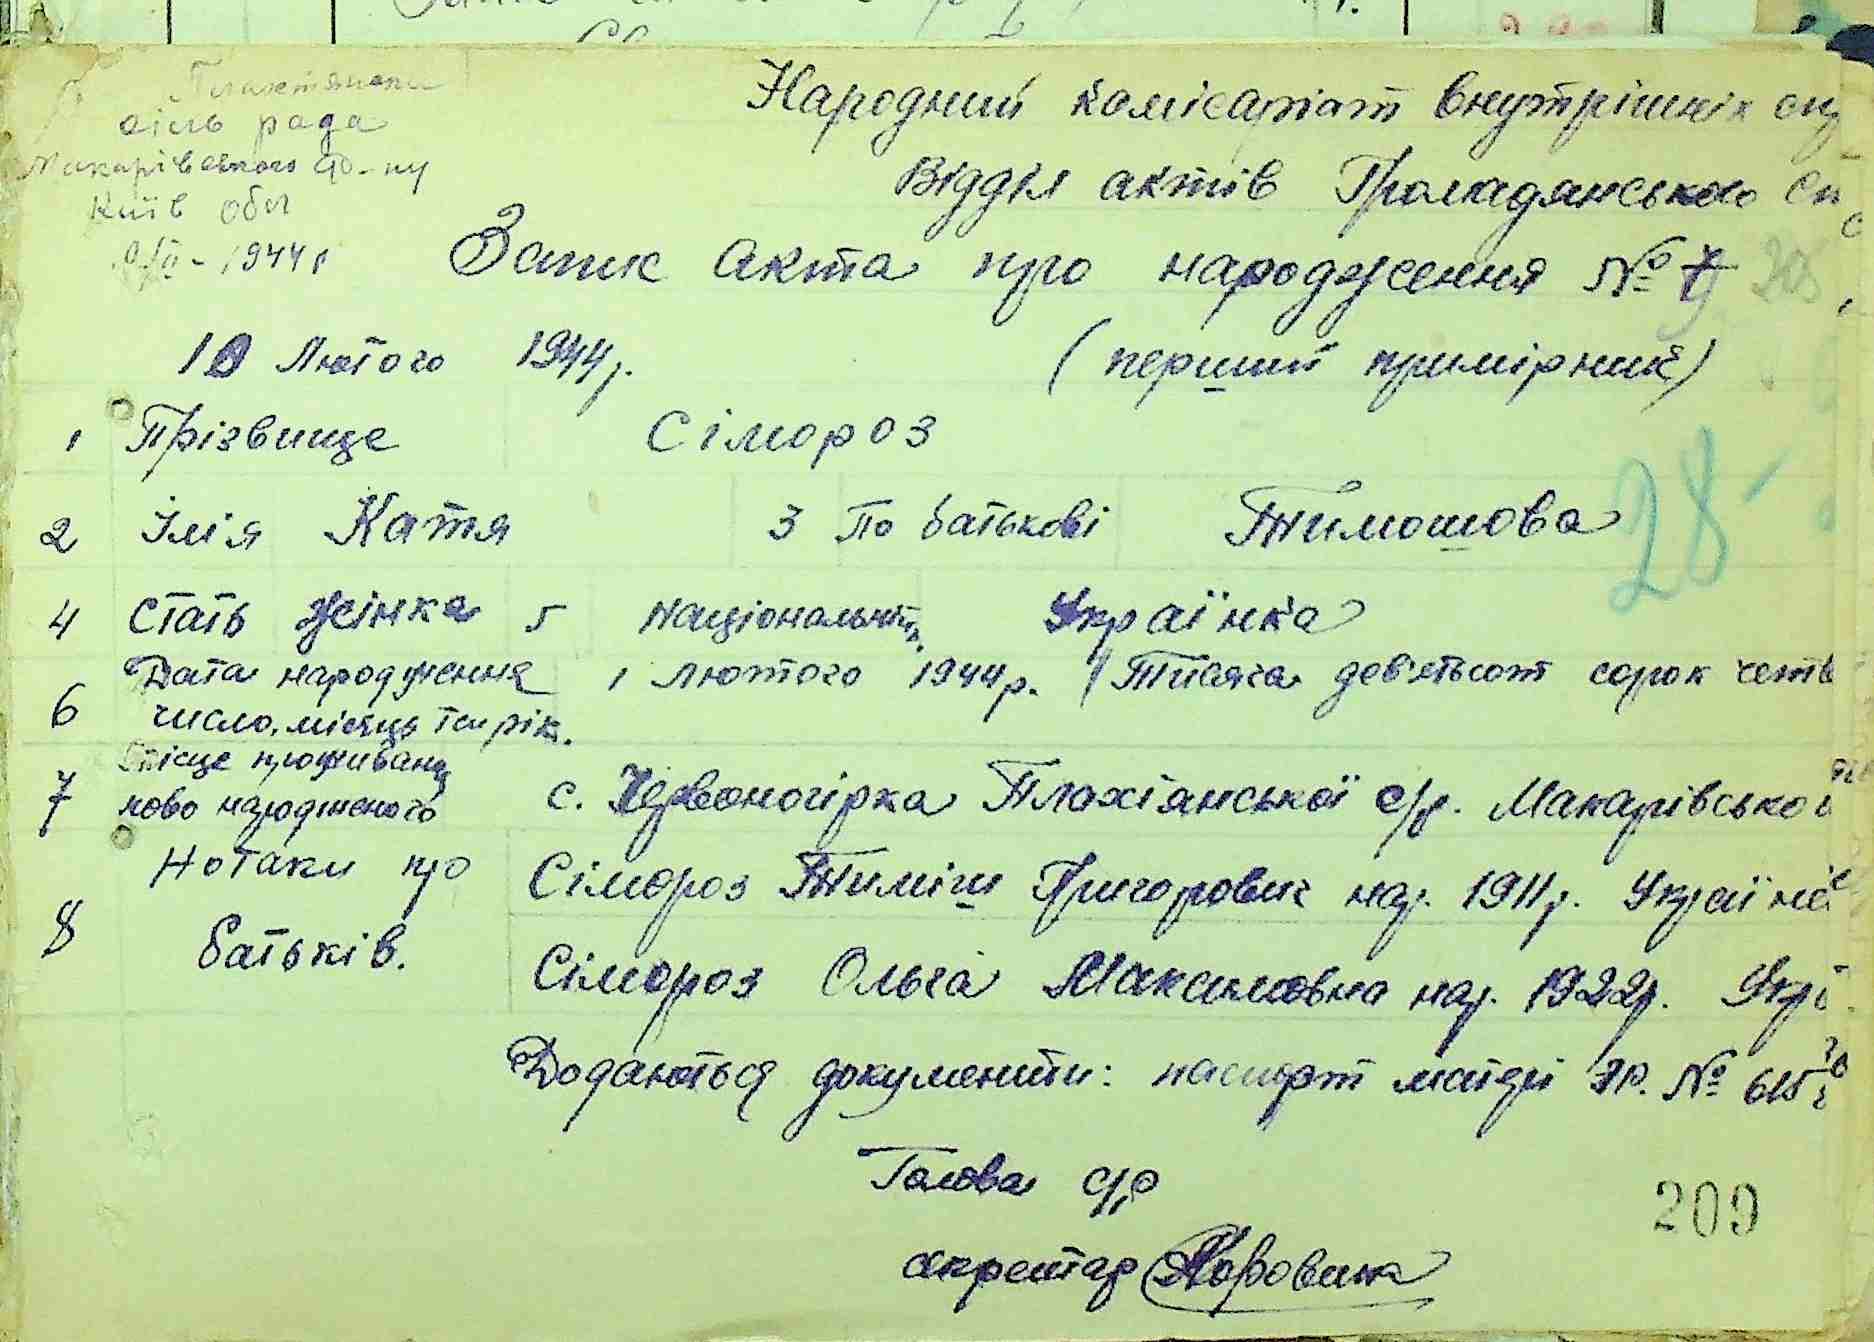 Плахтянська
сіль рада
Макарівського р-ну
Київ обл
1944 р
Народний комісаріат внутрішніх сп
Відділ актів Громадянського Ст
Запис акта про народження № 7
10 Лютого 1944 р.
(перший примірник)
1 Прізвище Сімороз
2 Імія Катя 3 По батькові Тимошова
28
4 Стать жінка 5 Національність Українка
6 Дата народження число, місяць та рік. 1 Лютого 1944 р. (Тисяча дев'ятьсот сорок четв
7 Місце проживання ново народженого с. Червоногірка Плахтянської с/р. Макарівської
8 Нотатки про батьків.
Сімороз Тиміш Григорович нар. 1911 р. Україне
Сімороз Ольга Максимовна нар. 1922 р. Укр
Додаються документи: паспорт матері № 615
Голова с/р
секретар
209